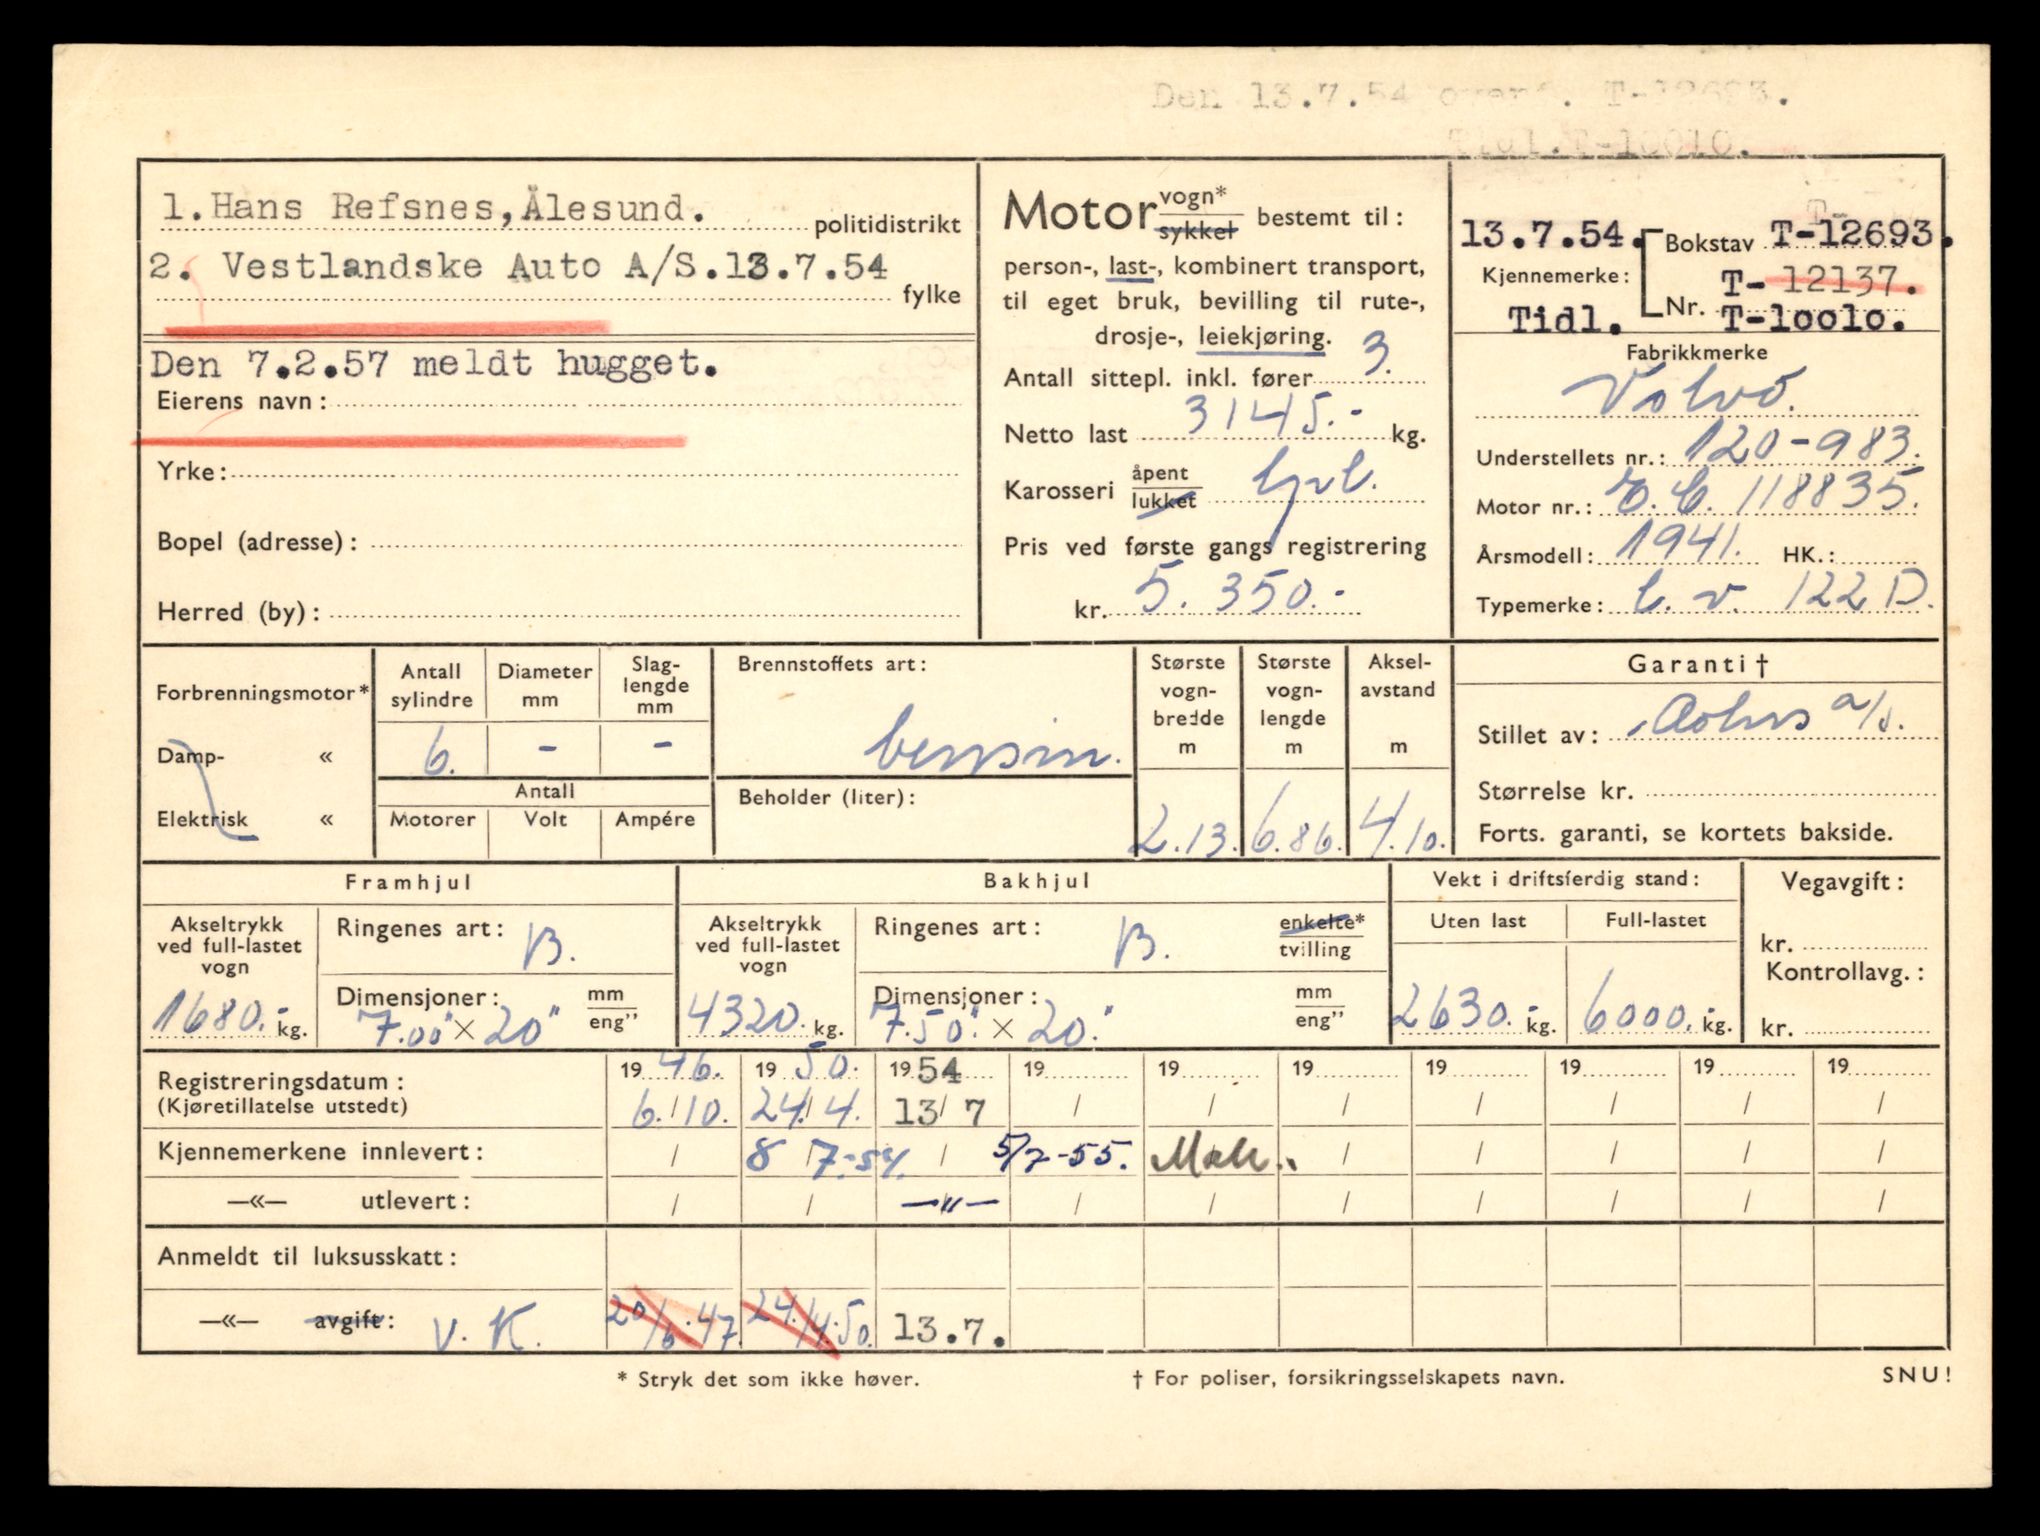 Den 13.7.54 overf. T-12693.
Tidl.T-10010.
1.Hans Refsnes,Ålesund. politidistrikt
2. Vestlandske Auto A/S.13.7.54
fylke
Den 7.2.57 meldt hugget.
Eierens navn:
Yrke:
Bopel (adresse):
Herred (by):
Motor vogn* sykkel bestemt til:
person-, last-, kombinert transport,
til eget bruk, bevilling til rute-,
drosje-, leiekjøring.
Antall sittepl. inkl. fører 3.
Netto last 3145.- kg.
Karosseri åpent lukket
Pris ved første gangs registrering
kr. 5.350.-
13.7.54. Bokstav T-12693.
Kjennemerke: T-12137.
Tidl. Nr. T-10010.
Fabrikkmerke
Volvo.
Understellets nr.: 120-983.
Motor nr.: 118835.
Årsmodell: 1941. HK.:
Typemerke: L.v. 122 D.
Forbrenningsmotor*
Damp- «
Elektrisk «
Antall sylindre
Diameter mm
Slag-lengde mm
6. - -
Antall
Motorer Volt Ampére
Brennstoffets art:
bensin.
Beholder (liter):
Største vogn-bredde m
Største vogn-lengde m
Aksel-avstand m
2.13. 6.86. 4.10.
Garanti†
Stillet av: a/s.
Størrelse kr.
Forts. garanti, se kortets bakside.
Framhjul
Akseltrykk ved full-lastet vogn
1680.- kg.
Ringenes art: B.
Dimensjoner: mm eng”
7.00" × 20"
Bakhjul
Akseltrykk ved full-lastet vogn
4320. kg.
Ringenes art: B. enkelte* tvilling
Dimensjoner: mm eng”
7.50" × 20."
Vekt i driftsferdig stand:
Uten last Full-lastet
2630.- kg. 6000.- kg.
Vegavgift:
kr.
Kontrollavg.:
kr.
Registreringsdatum: 19 46. 19 50. 19 54 19 19 19 19 19 19 19
(Kjøretillatelse utstedt) 6./10. 24./4. 13/ 7 / / / / / / /
Kjennemerkene innlevert: / 8 /7-54. / 5/7-55. / / / / /
—«— utlevert: / / —"— / / / / / / /
Anmeldt til luksusskatt:
—«— avgift: V.K. 20/6.47. 24./4.50. 13.7.
* Stryk det som ikke høver.
† For poliser, forsikringsselskapets navn.
SNU!